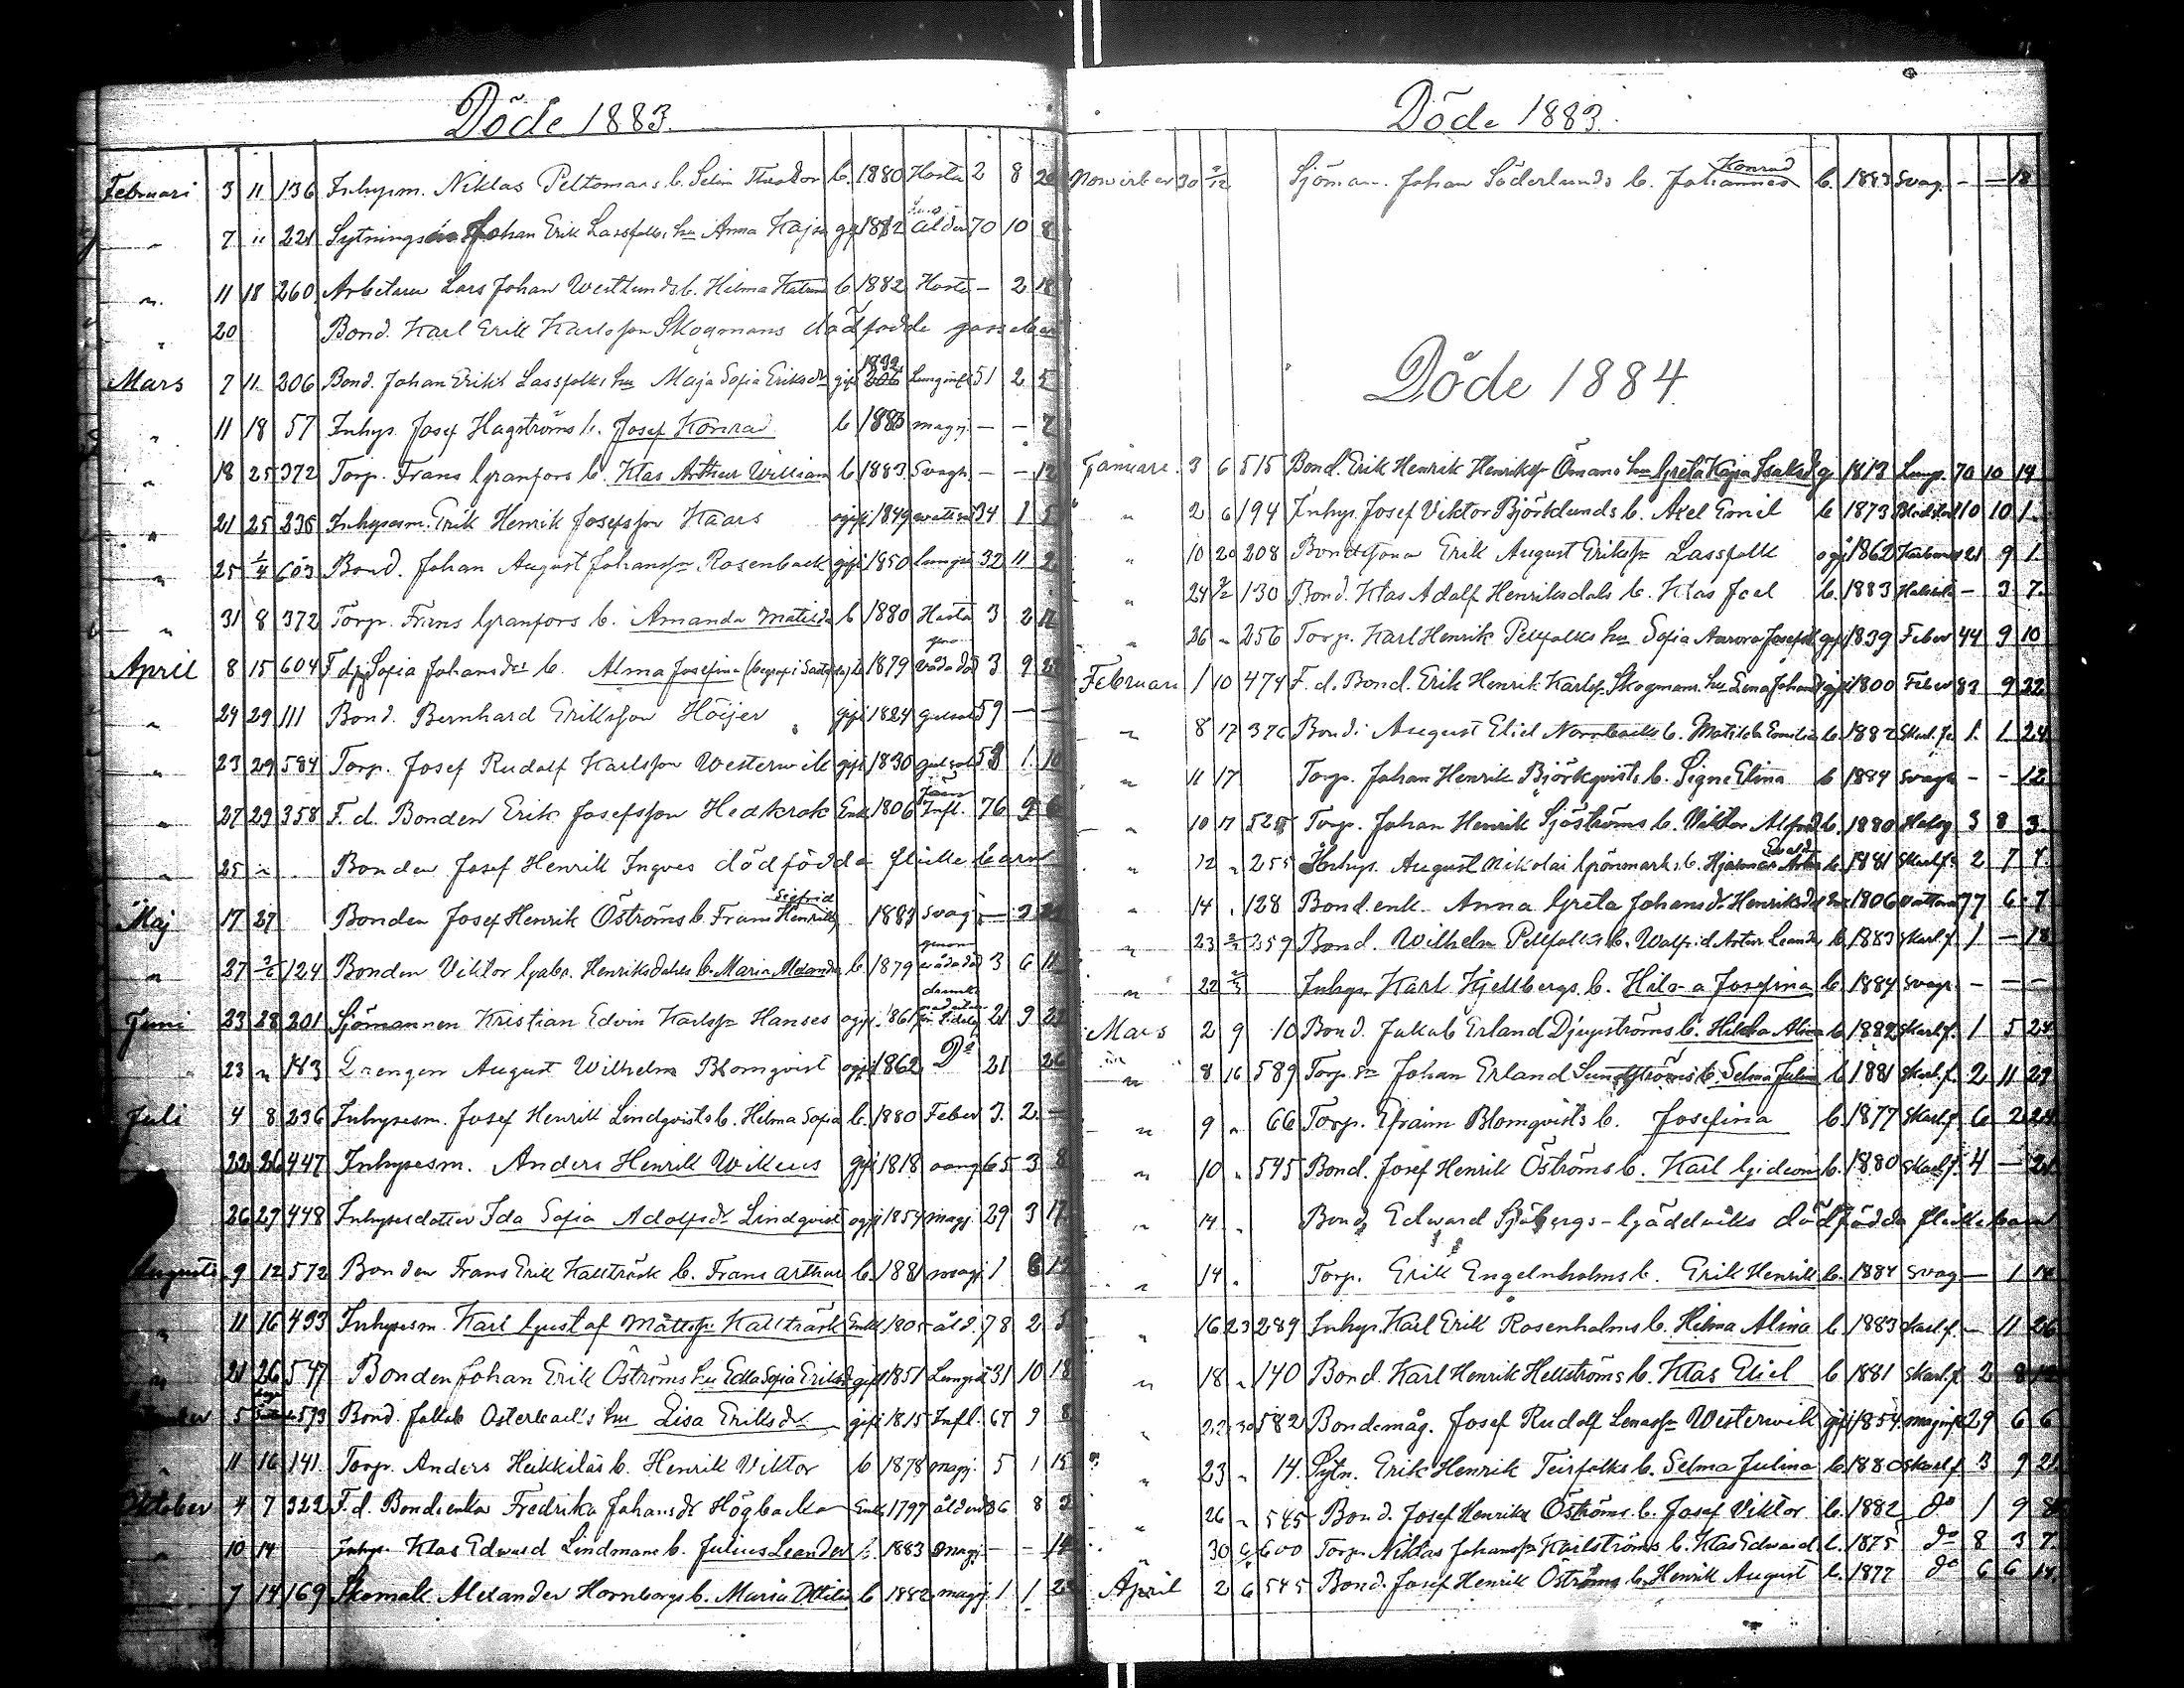 Döde 1883.
Februari 3 11 136 Inhysm. Niklas Peltomaas b. Selim b. 1880 Hosta 2 8
" 7 " 221 Sytnings Johan Erik Lassfolks hu Anna Kajsa gift 1812 ålder 70 10 8
" 11 18 260 Arbetaren Lars Johan Westlunds b. Hilma b 1882 Hosta - 2 18
" 20 Bond. Karl Erik Karlsson Skogmans dödfödde gosse
Mars 7 11 206 Bond. Johan Eriks Lassfolks hu Maja Sofia Eriksdr gift 1832 Lunginfl 51 2 5
" 11 18 57 Inhys. Josef Hagströms b. Josef Konrad b 1883 magsj - - 2
" 18 25 372 Torp. Frans Granfors b. Klas Arthur William b 1883 Svagh - - 12
" 21 25 238 Inhysesm. Erik Henrik Josefsson Kaars ogift 1849 34 1 5
" 25 1/4 603 Bond. Johan August Johansson Rosenback gift 1850 32 11 2
" 31 8 372 Torp. Frans Granfors b. Amanda Matilda b 1880 Hosta 3 2 12
April 8 15 604 Sofia Johansdr b. Alma Josefina b 1879 genom våda död 3 9
" 24 29 111 Bond. Bernhard Eriksson Höijer gift 1824 gulsot 59 — —
" 23 29 584 Torp. Josef Rudolf Karlsson Westerwik gift 1830 gulsot 53 1 10
" 27 29 358 F. d. Bonden Erik Josefsson Hedkrok Enkl 1806 Infl. 76 9 6
" 25 " Bonden Josef Henrik Ingves dödfödda flicke barn
Maj 17 27 Bonden Josef Henrik Öströms b. Frans Sigfrid Henrik 1883 svag — 3
" 27 3/6 124 Bonden Viktor Gabr. Henriksdahls b. Maria b 1879 genom våda död 3 6 11
Juni 23 28 201 Sjömannen Kristian Edvin Karlsson Hanses ogift 1861 21 9
" 23 " 183 Drengen August Wilhelm Blomqvist ogift 1862 Do 21 26
Juli 4 8 236 Inhysesm. Josef Henrik Lindqvists b. Hilma Sofia b. 1880 Feber 3. 2. —
22 26 447 Inhysesm. Anders Henrik Wikus gift 1818 65 3 8
26 27 448 Inhysesdotter Ida Sofia Adolfsdr Lindqvist ogift 1854 magsj. 29 3 17
Augusti 9 12 572 Bonden Frans Erik Kallträsk b. Frans Arthur b. 1881 magsj 1 6
" 11 16 493 Inhysesm. Karl Gustaf Mattsson Kallträsk Enkl 1805 åld. 78 2 5
" 21 26 547 Bonden Johan Erik Öströms hu Edla Sofia Eriksdr gift 1851 Lungsot 31 10 18
5 593 Bond. Jakob Österbacks hu Lisa Eriksdr gift 1815 Infl. 67 9 8
11 16 141 Torp. Anders Heikkiläs b. Henrik Viktor b 1878 magsj. 5 1 15
Oktober 4 7 322 F. d. Bondenka Fredrika Johansdr Högbacka Enka 1797 ålderd 86 8 2
" 10 14 Inhys. Klas Edward Lindmans b. Julius Leander b. 1883 magsj. - - 14
7 14 169 Skomak Alexander Hornborgs b. Maria Ottilia b 1882 magsj. 1 1
Döde 1883.
November 30 3/12 Sjöman. Johan Söderlunds b. Johannes Konrad b. 1883 Svag. - — 18
Döde 1884
Januari. 3 6 515 Bond. Erik Henrik Henriksson Ömans hu Greta Kajsa Isaksdr g 1813 Lung. 70 10 14
" 2 6 194 Inhys. Josef Viktor Björklunds b. Axel Emil b 1873 10 10 1.
" 10 20 208 Bondesona Erik August Eriksson Lassfolk ogi 1862 21 9 1.
" 24 130 Bond. Klas Adolf Henriksdals b. Klas Joel b. 1883 - 3 7.
" 26 " 256 Torp. Karl Henrik Pellfolks hu Sofia Aurora Josefsdr gift 1839 Feber 44 9 10
Februari 1 10 474 F. d. Bond. Erik Henrik Karlsson Skogmans hu Lena Johansdr gift 1800 Feber 83 9 22.
" 8 17 376 Bond. August Eliel Norrbacks b. Matilda Emilia b. 1882 Skarl. fe 1. 1. 24
" 11 17 Torp. Johan Henrik Björkqvists b. Signe Elina b 1884 Svagh - - 12
" 10 17 525 Torp. Johan Henrik Sjöströms b. Viktor Alfred b. 1880 3 8 3.
" 12 " 255 Inhys. August Nikolai Grönmarks b. Hjalmar b. 1881 Skarlf. 2 7 7.
" 14 " 128 Bond. enk. Anna Greta Johansdr Henriksdal 1806 77 6 7
" 23 2/3 359 Bond. Wilhelm Pellfolks b. Walfrid Artur Leander b 1883 Skarl f. 1 — 18
" 22 2/3 Inhys. Karl Kjellbergs b. Hilma Josefina b. 1884 svagh. - — —
Mars 2 9 10 Bond. Jakob Erland Djupströms b. Hilda Alina b 1882 Skarl f. 1 5 24
" 8 16 589 Torp. sn Johan Erland Sundströms b. Selma Julina b 1881 Skarl. f. 2 11 29
" 9 " 66 Torp. Efraim Blomqvists b. Josefina b. 1877 Skarl f 6 2 24
" 10 " 545 Bond. Josef Henrik Öströms b. Karl Gideon b. 1880 Skarl f. 4 — 21
" 14 " Bond. Edward Sjöbergs-Gäddviks dödfödda flicke barn
" 14 " Torp. Erik Engelnholms b. Erik Henrik b. 1884 svag — 1 14
" 16 23 289 Inhys. Karl Erik Rosenholms b. Hilma Alina b. 1883 Skarl f. — 11 26
" 18 " 140 Bond. Karl Henrik Hellströms b. Klas Eliel b 1881 Skarl f 2 8
" 22 30 582 Bondemåg. Josef Rudolf Westerwik gift 1854 29 6 6
" 23 " 14. Sytn. Erik Henrik Teirfolks b. Selma Julina b. 1880 Skarl f 3 9 21
" 26 " 545 Bond. Josef Henrik Öströms b. Josef Viktor b. 1882 do 1 9 8
" 30 6 600 Torp. Niklas Johansson Karlströms b. Klas Edward b. 1875 do 8 3 7
April 2 6 545 Bond. Josef Henrik Öströms b. Henrik August b. 1877 do 6 6 14